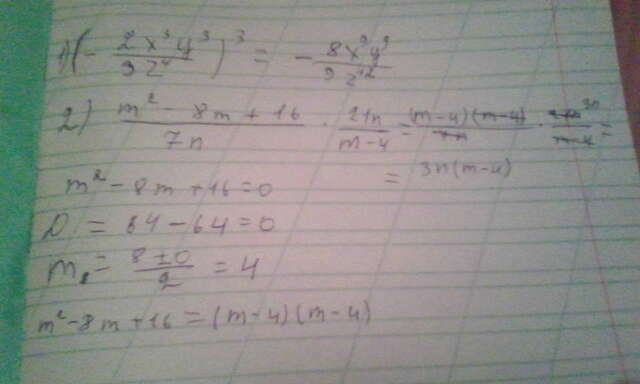 1) (- 2x³y³ / 9z⁴)³ = - 8x⁹y⁹ / 9z¹²
2) m² - 8m + 16 / 7n · 21n / m-4 = (m-4)(m-4) / 7n · 3n / m-4 =
= 3n(m-4)
m² - 8m + 16 = 0
D = 64 - 64 = 0
m = 8 ± 0 / 2 = 4
m² - 8m + 16 = (m-4)(m-4)